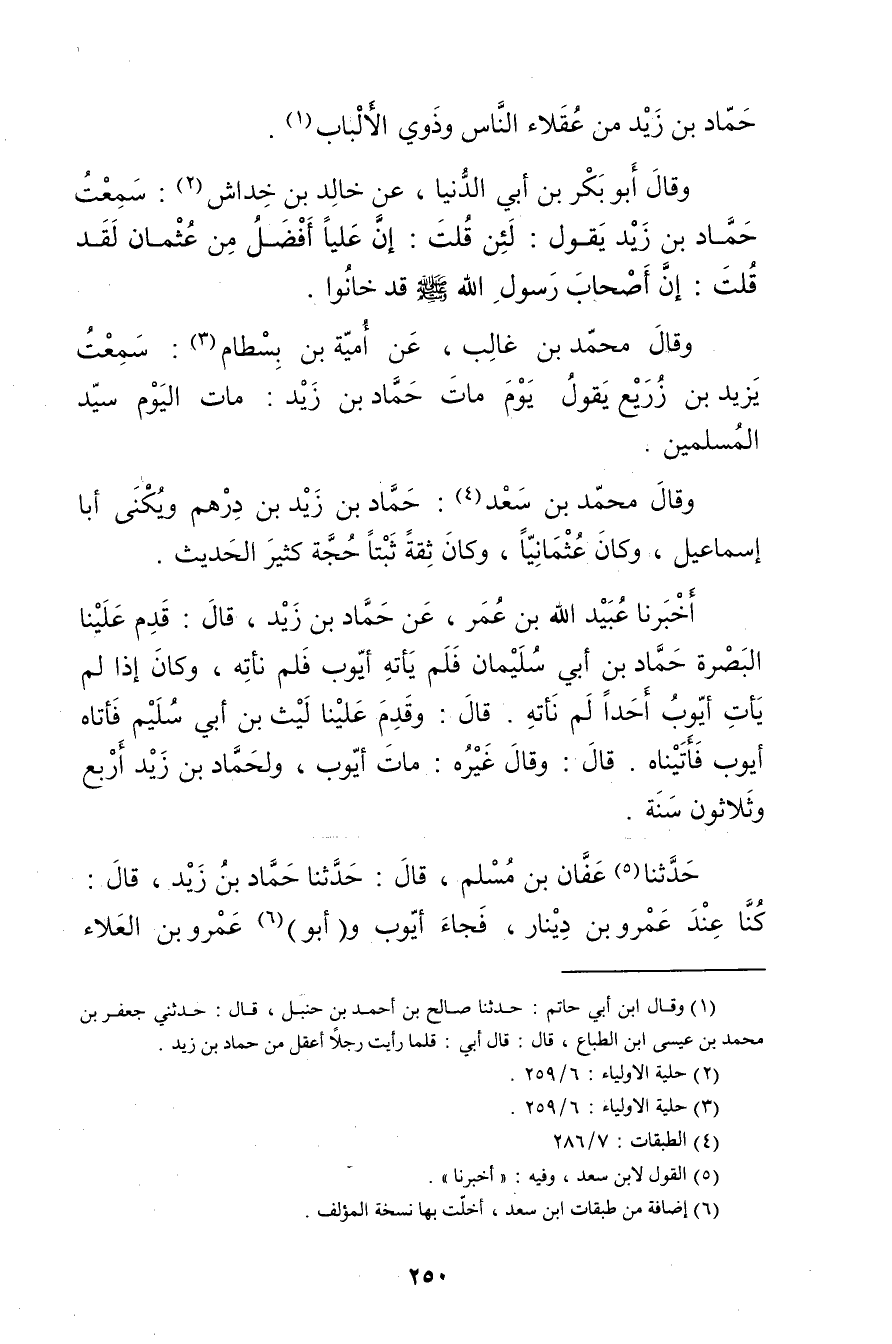 حَمّاد بن زَيْد من عُقَلاء النَّاس وذَوي الأَلْباب(١) .
وقالَ أَبو بَكْر بن أبي الدُّنيا ، عن خالِد بن خِداش(٢) : سَمِعْتُ
حَمَّـاد بن زَيْد يَقـول : لَئِن قُلتَ : إنَّ عَلياً أَفْضَـلُ مِن عُثْمـان لَقَـد
قُلتَ : إنَّ أَصْحابَ رَسولِ الله ﷺ قد خانُوا .
وقالَ محمّد بن غالِب ، عَن أُميّة بن بِسْطام(٣) : سَمِعْتُ
يَزيد بن زُرَيْع يَقولُ يَوْمَ ماتَ حَمَّاد بن زَيْد : مات اليَوْم سيّد
المُسلمين .
وقالَ محمّد بن سَعْد(٤) : حَمَّاد بن زَيْد بن دِرْهم ويُكْنَى أبا
إسماعيل ، وكانَ عُثْمَانِيّاً ، وكانَ ثِقةً ثَبْتاً حُجَّة كثيرَ الحَديث .
أَخْبَرنا عُبَيْد الله بن عُمَر ، عَن حَمَّاد بن زَيْد ، قالَ : قَدِم عَلَيْنا
البَصْرة حَمَّاد بن أبي سُلَيْمان فَلَم يَأتهِ أيّوب فَلم نأتِه ، وكانَ إذا لم
يَأتِ أيّوبُ أَحَداً لَم نَأتهِ . قالَ : وقَدِمَ عَلَيْنا لَيْث بن أبي سُلَيْم فَأتاه
أيوب فَأَتَيْناه . قالَ : وقالَ غَيْرُه : ماتَ أيّوب ، ولحَمَّاد بن زَيْد أَرْبع
وثَلاثون سَنَة .
حَدَّثنا(٥) عَفَّان بن مُسْلم ، قالَ : حَدَّثنا حَمَّاد بنُ زَيْد ، قالَ :
كُنَّا عِنْدَ عَمْرو بن دِيْنار ، فَجاءَ أيّوب و( أبو )(٦) عَمْرو بن العَلاء
(١) وقـال ابن أبي حاتم : حـدثنا صـالح بن أحمـد بن حنبـل ، قـال : حـدثني جعفـر بن
محمد بن عيسى ابن الطباع ، قال : قال أبي : قلما رأيت رجلاً أعقل من حماد بن زيد .
(٢) حلية الاولياء : ٦/ ٢٥٩ .
(٣) حلية الاولياء : ٦/ ٢٥٩ .
(٤) الطبقات : ٧/ ٢٨٦
(٥) القول لابن سعد ، وفيه : « أخبرنا » .
(٦) إضافة من طبقات ابن سعد ، أخلّت بها نسخة المؤلف .
٢٥٠